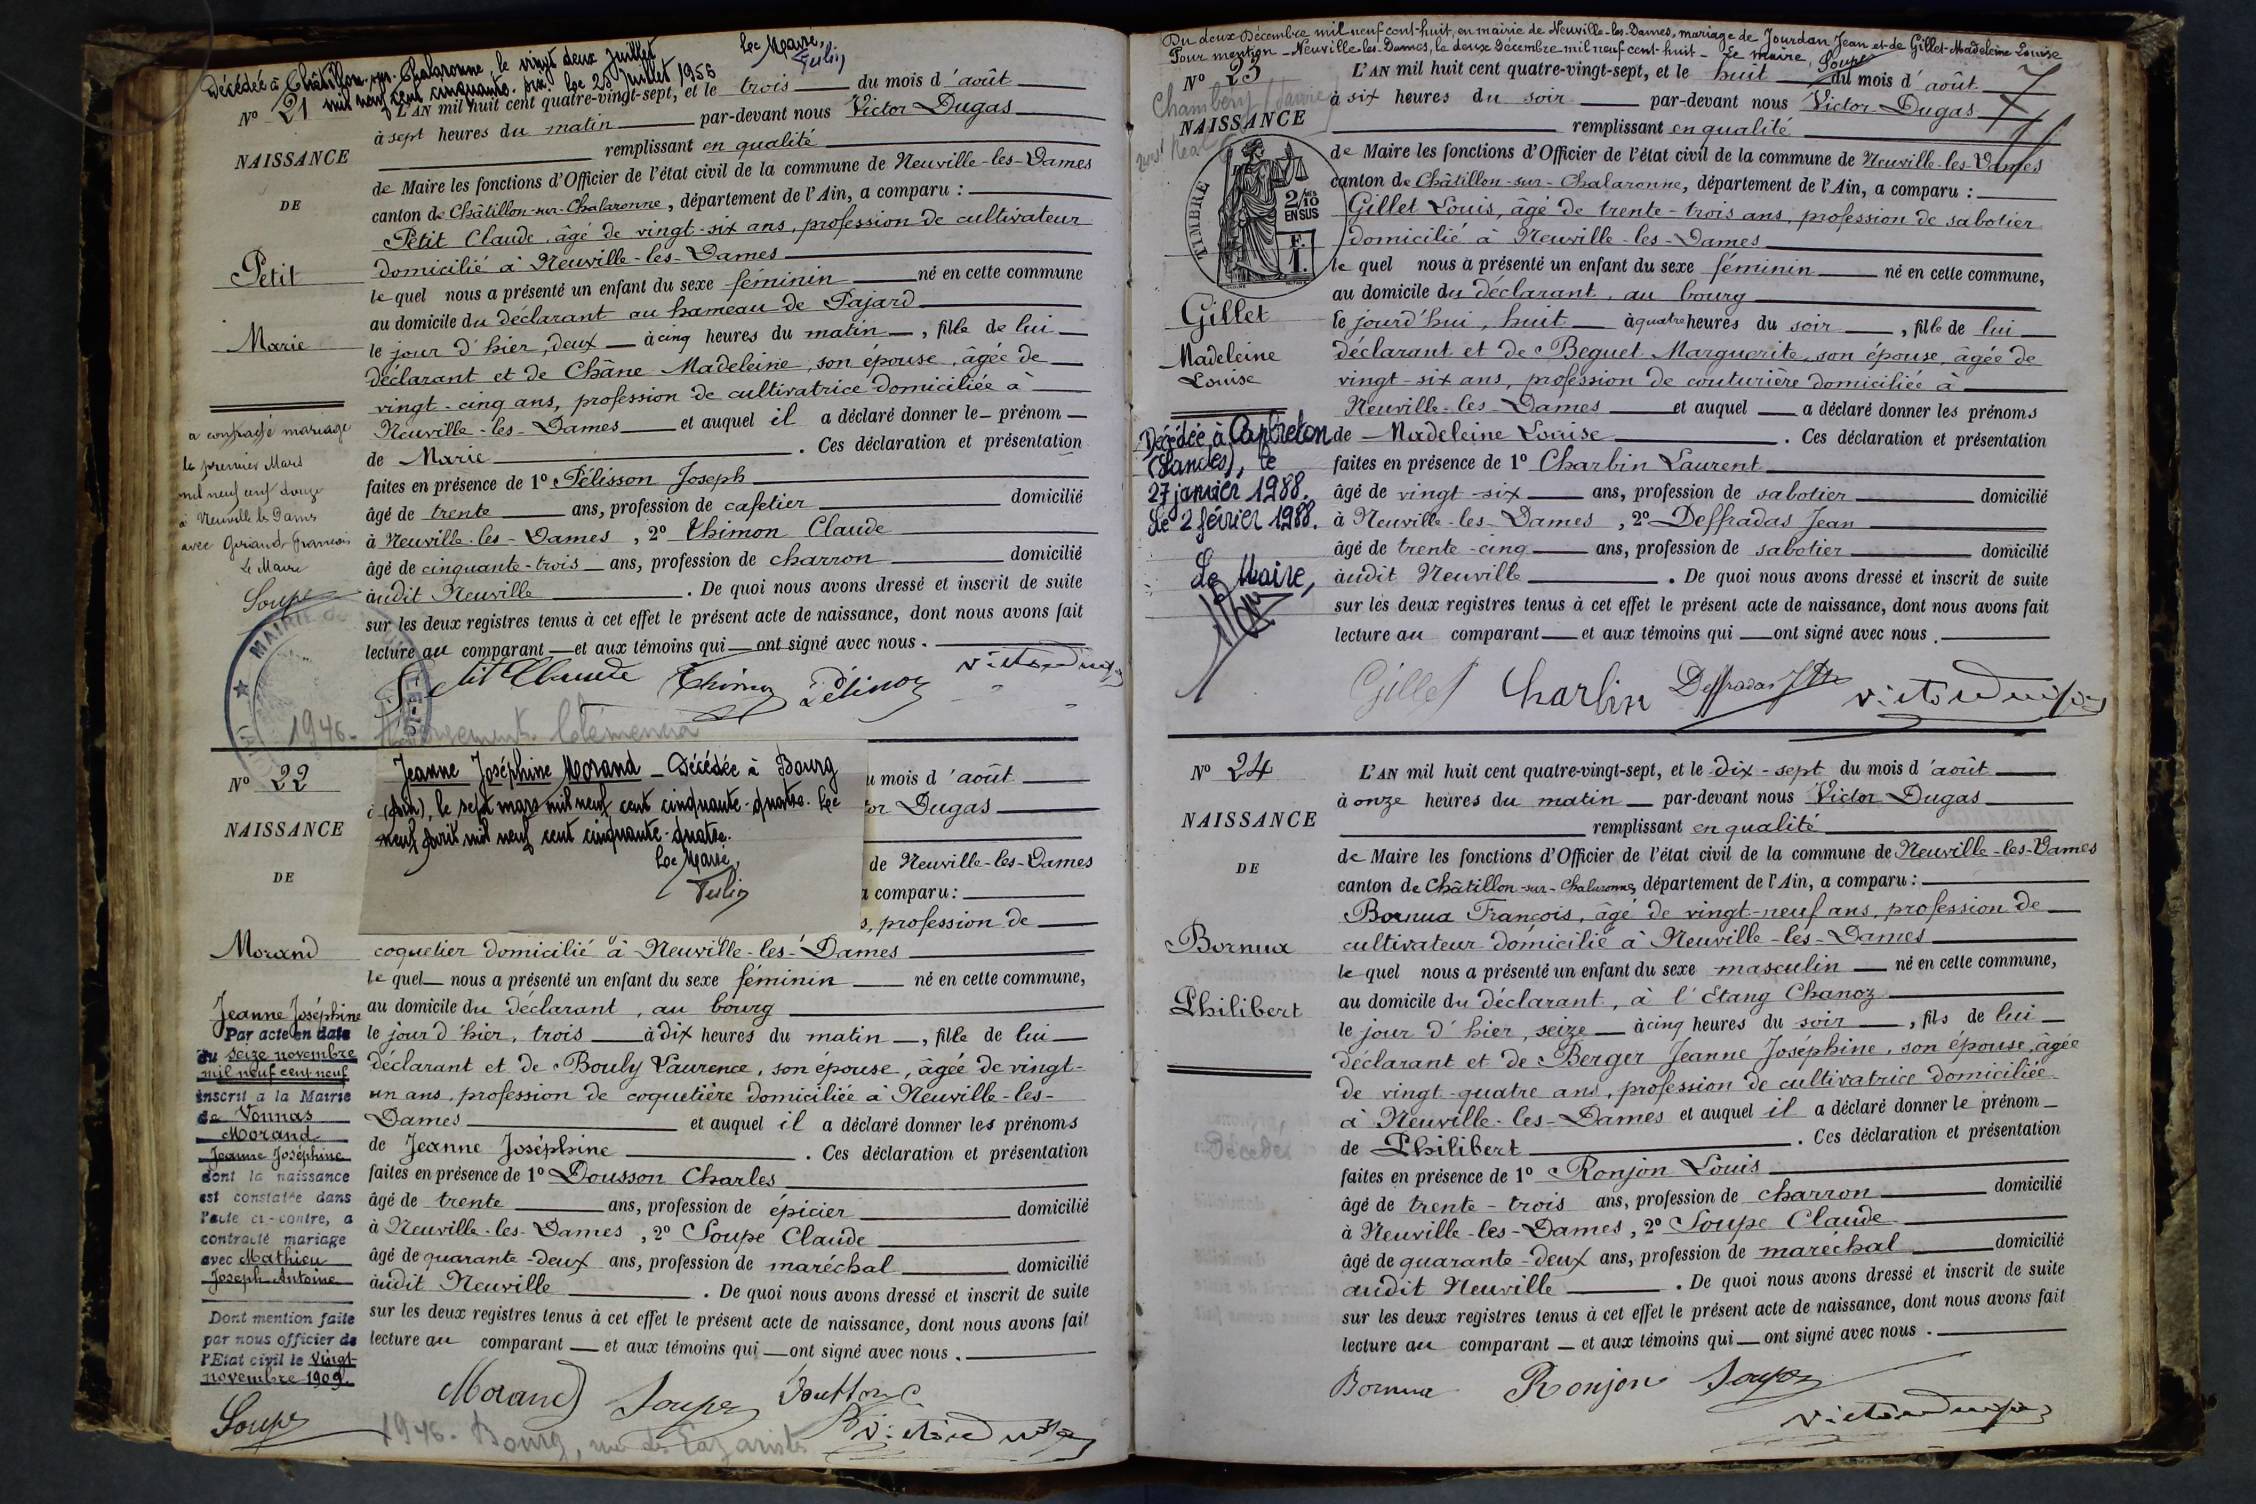 Décédée à Châtillon-sur-Chalaronne, le vingt deux Juillet
mil neuf cent cinquante-six. Le 25 Juillet 1956
Le Maire,
Tulin
N° 21
NAISSANCE
DE
Petit
Marie
a contracté mariage
le premier Mars
mil neuf cent douze
à Neuville les Dames
avec Giraud François
Le Maire
Soupe
MAIRIE
L'AN mil huit cent quatre-vingt-sept, et le trois du mois d'août
à sept heures du matin par-devant nous Victor Dugas
remplissant en qualité
de Maire les fonctions d'Officier de l'état civil de la commune de Neuville-les-Dames
canton de Châtillon-sur-Chalaronne, département de l'Ain, a comparu :
Petit Claude, âgé de vingt-six ans, profession de cultivateur
domicilié à Neuville-les-Dames
lequel nous a présenté un enfant du sexe féminin né en cette commune
au domicile du déclarant au hameau de Pajard
le jour d'hier, deux à cinq heures du matin, fille de lui
déclarant et de Châne Madeleine, son épouse, âgée de
vingt-cinq ans, profession de cultivatrice domiciliée à
Neuville-les-Dames et auquel il a déclaré donner le prénom
de Marie. Ces déclaration et présentation
faites en présence de 1° Pélisson Joseph
âgé de trente ans, profession de cafetier domicilié
à Neuville-les-Dames, 2° Thimon Claude
âgé de cinquante-trois ans, profession de charron domicilié
audit Neuville. De quoi nous avons dressé et inscrit de suite
sur les deux registres tenus à cet effet le présent acte de naissance, dont nous avons fait
lecture au comparant et aux témoins qui ont signé avec nous.
Petit Claude Thimon Pélisson Victor Dugas
1946.
N° 22
NAISSANCE
DE
Morand
Jeanne Joséphine
Par acte en date
du seize novembre
mil neuf cent neuf
inscrit à la Mairie
de Vonnas
Morand
Jeanne Joséphine
dont la naissance
est constatée dans
l'acte ci-contre, a
contracté mariage
avec Mathieu
Joseph Antoine
Dont mention faite
par nous officier de
l'Etat civil le vingt
novembre 1909.
Soupe
Jeanne Joséphine Morand - Décédée à Bourg
(Ain), le sept mars mil neuf cent cinquante-quatre. Le
neuf avril mil neuf cent cinquante-quatre.
Le Maire,
Tulin
u mois d'août
or Dugas
de Neuville-les-Dames
a comparu :
s, profession de
coquetier domicilié à Neuville-les-Dames
lequel nous a présenté un enfant du sexe féminin né en cette commune,
au domicile du déclarant, au bourg
le jour d'hier, trois à dix heures du matin, fille de lui
déclarant et de Bouly Laurence, son épouse, âgée de vingt-
un ans, profession de coquetière domiciliée à Neuville-les-
Dames et auquel il a déclaré donner les prénoms
de Jeanne Joséphine. Ces déclaration et présentation
faites en présence de 1° Dousson Charles
âgé de trente ans, profession de épicier domicilié
à Neuville-les-Dames, 2° Soupe Claude
âgé de quarante-deux ans, profession de maréchal domicilié
audit Neuville. De quoi nous avons dressé et inscrit de suite
sur les deux registres tenus à cet effet le présent acte de naissance, dont nous avons fait
lecture au comparant et aux témoins qui ont signé avec nous.
Morand Soupe Dousson C
Victor Dugas
1946. Bourg, rue des Lazaristes
Du deux Décembre mil neuf cent-huit, en mairie de Neuville-les-Dames, mariage de Jourdan Jean et de Gillet Madeleine Louise
Pour mention - Neuville-les-Dames, le deux Décembre mil neuf cent-huit - Le maire, Soupe
N° 23
Chambéry
NAISSANCE
TIMBRE
2/10 EN SUS
F. 1.
Gillet
Madeleine
Louise
Décédée à Capbreton
(Landes), le
27 janvier 1988.
Le 2 février 1988.
Le Maire,
L'AN mil huit cent quatre-vingt-sept, et le huit du mois d'août
à six heures du soir par-devant nous Victor Dugas
remplissant en qualité
de Maire les fonctions d'Officier de l'état civil de la commune de Neuville-les-Dames
canton de Châtillon-sur-Chalaronne, département de l'Ain, a comparu :
Gillet Louis, âgé de trente-trois ans, profession de sabotier
domicilié à Neuville-les-Dames
lequel nous a présenté un enfant du sexe féminin né en cette commune,
au domicile du déclarant, au bourg
le jourd'hui, huit à quatre heures du soir, fille de lui
déclarant et de Beguet Marguerite, son épouse, âgée de
vingt-six ans, profession de couturière domiciliée à
Neuville-les-Dames et auquel a déclaré donner les prénoms
de Madeleine Louise. Ces déclaration et présentation
faites en présence de 1° Charbin Laurent
âgé de vingt-six ans, profession de sabotier domicilié
à Neuville-les-Dames, 2° Deffradas Jean
âgé de trente-cinq ans, profession de sabotier domicilié
audit Neuville. De quoi nous avons dressé et inscrit de suite
sur les deux registres tenus à cet effet le présent acte de naissance, dont nous avons fait
lecture au comparant et aux témoins qui ont signé avec nous.
Gillet Charbin Deffradas Victor Dugas
N° 24
NAISSANCE
DE
Bornua
Philibert
L'AN mil huit cent quatre-vingt-sept, et le dix-sept du mois d'août
à onze heures du matin par-devant nous Victor Dugas
remplissant en qualité
de Maire les fonctions d'Officier de l'état civil de la commune de Neuville-les-Dames
canton de Châtillon-sur-Chalaronne, département de l'Ain, a comparu :
Bornua François, âgé de vingt-neuf ans, profession de
cultivateur domicilié à Neuville-les-Dames
lequel nous a présenté un enfant du sexe masculin né en cette commune,
au domicile du déclarant, à l'Etang Chanoz
le jour d'hier, seize à cinq heures du soir, fils de lui
déclarant et de Berger Jeanne Joséphine, son épouse, âgée
de vingt-quatre ans, profession de cultivatrice domiciliée
à Neuville-les-Dames et auquel il a déclaré donner le prénom
de Philibert. Ces déclaration et présentation
faites en présence de 1° Ronjon Louis
âgé de trente-trois ans, profession de charron domicilié
à Neuville-les-Dames, 2° Soupe Claude
âgé de quarante-deux ans, profession de maréchal domicilié
audit Neuville. De quoi nous avons dressé et inscrit de suite
sur les deux registres tenus à cet effet le présent acte de naissance, dont nous avons fait
lecture au comparant et aux témoins qui ont signé avec nous.
Bornua Ronjon Soupe
Victor Dugas